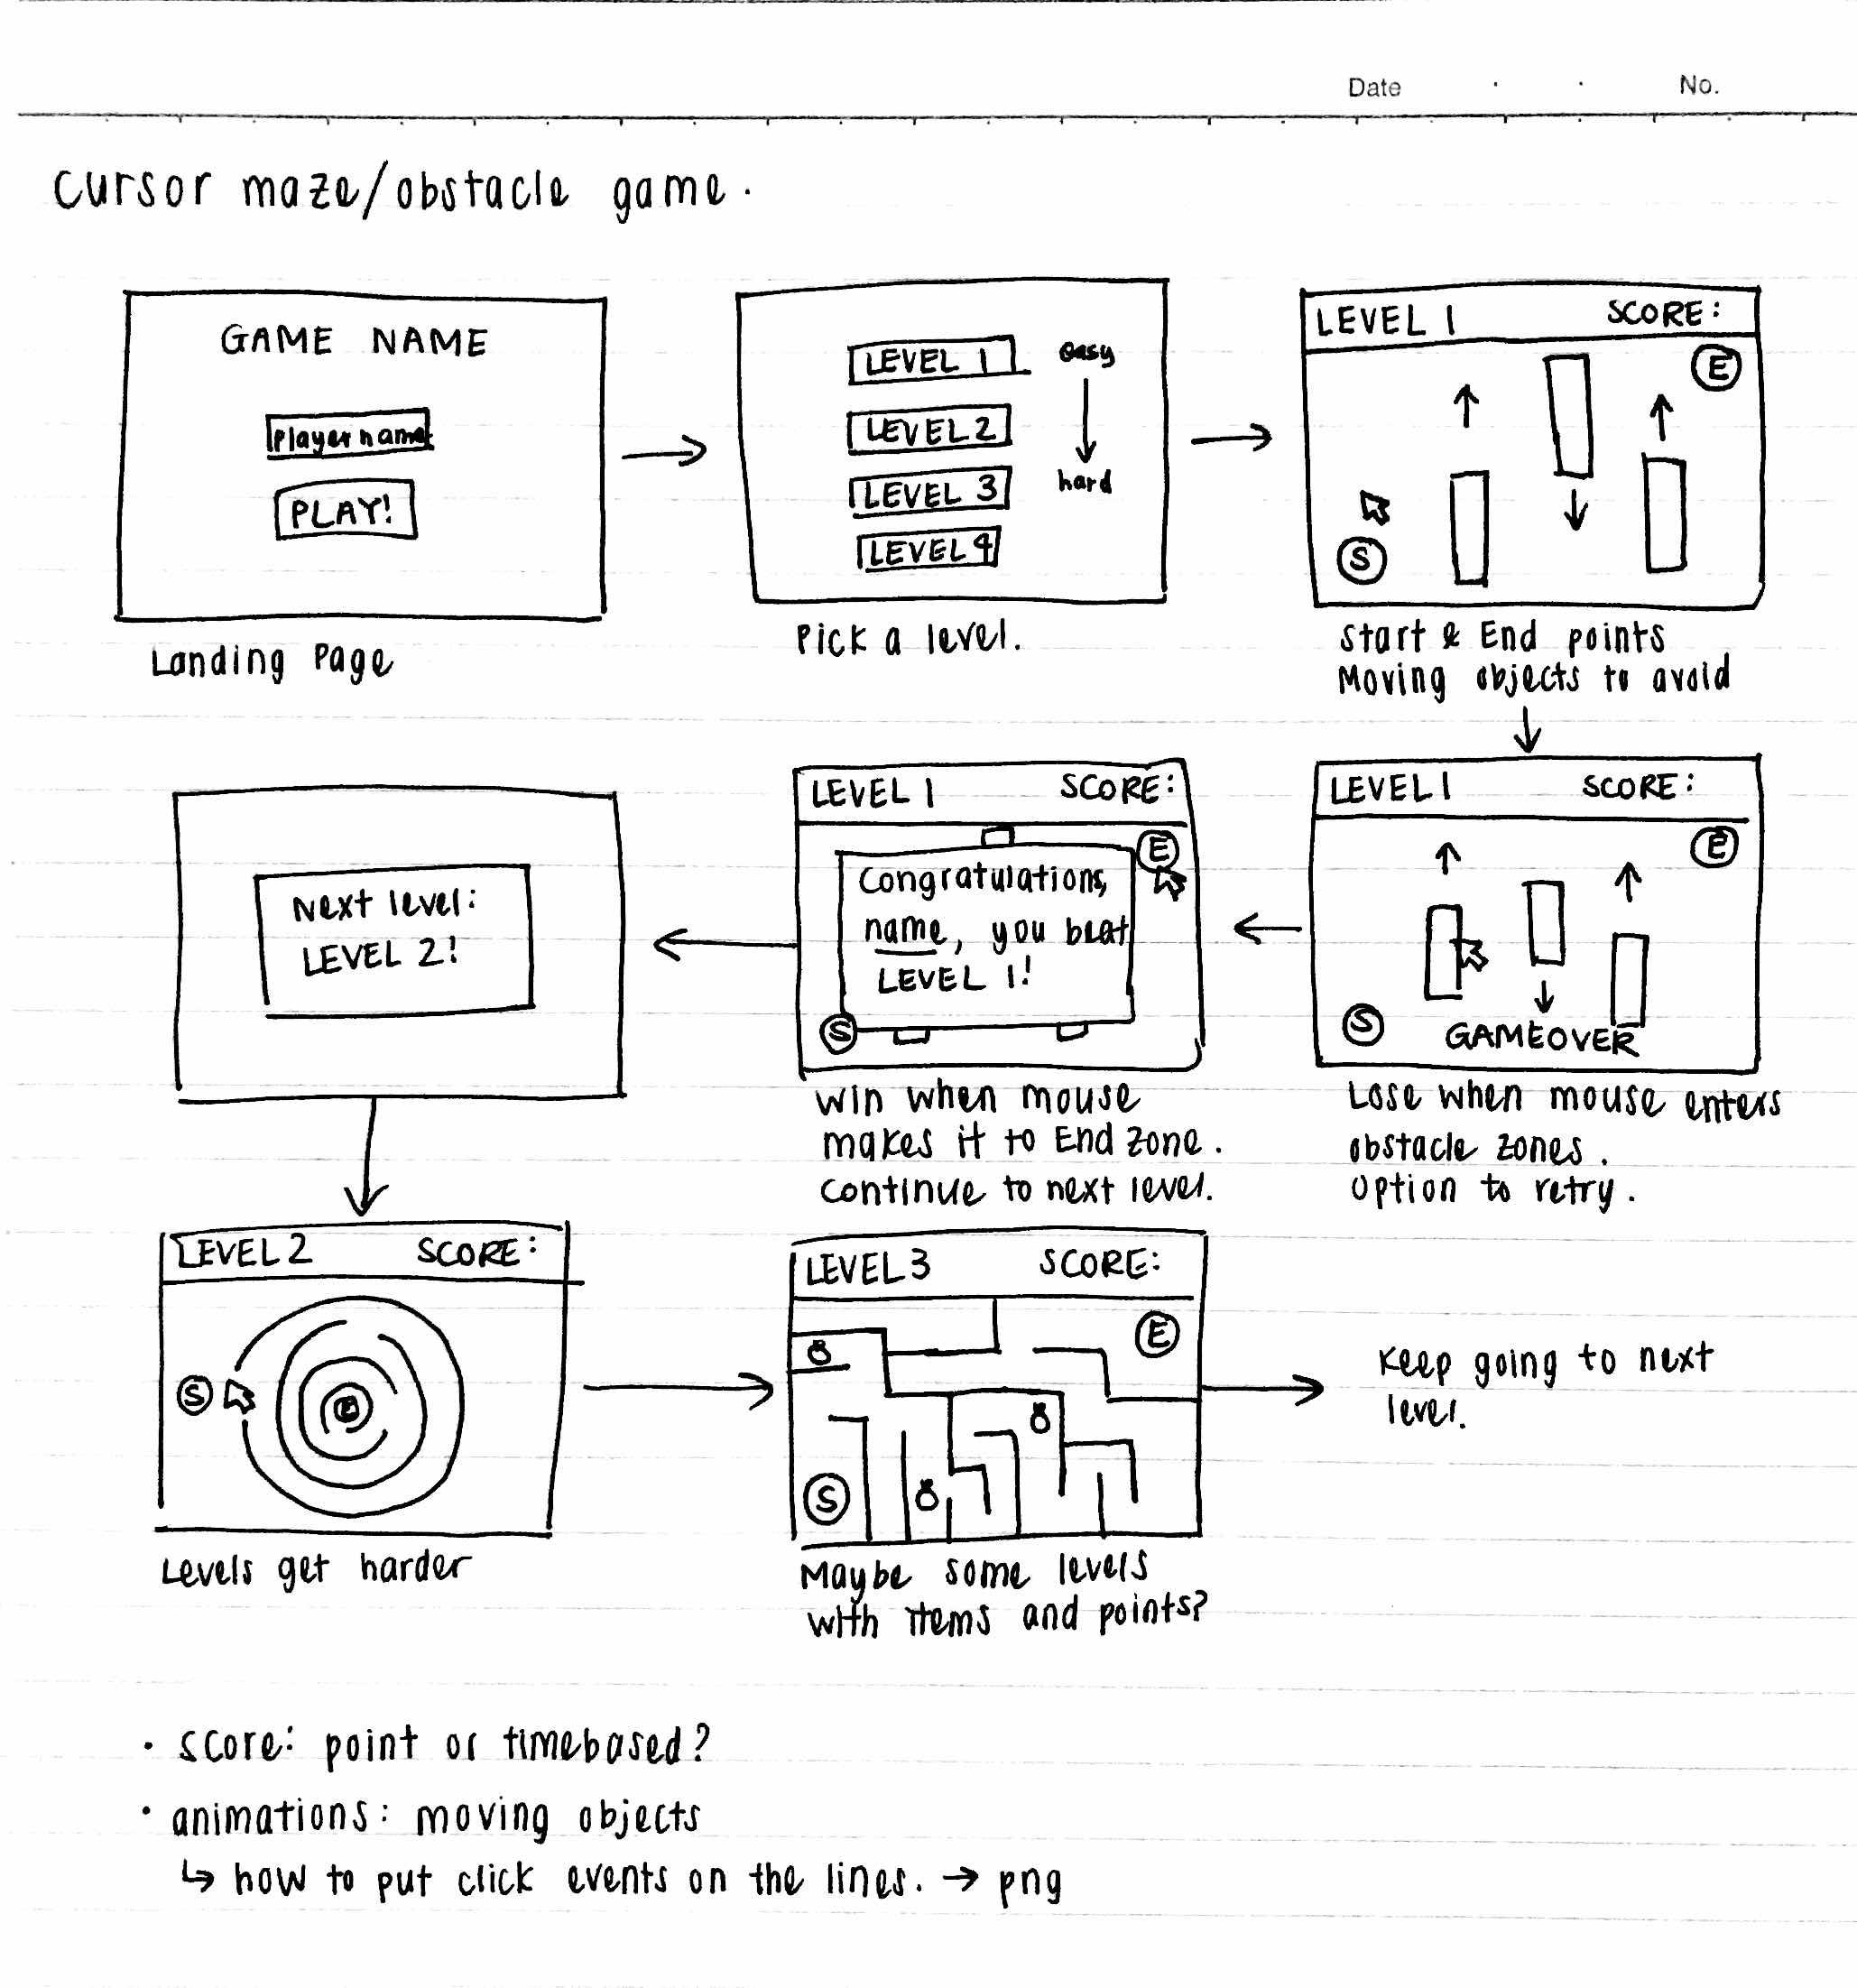 Date . . No.
cursor maze/obstacle game.
GAME NAME
Player name
PLAY!
Landing Page
LEVEL 1
LEVEL 2
LEVEL 3
LEVEL 4
easy
hard
Pick a level.
LEVEL 1 SCORE:
E
S
Start & End points
Moving objects to avoid
LEVEL 1 SCORE:
E
S
GAMEOVER
Lose when mouse enters
obstacle zones.
Option to retry.
LEVEL 1 SCORE:
E
Congratulations,
name, you beat
LEVEL 1!
S
Win when mouse
makes it to End zone.
Continue to next level.
Next level:
LEVEL 2!
LEVEL 2 SCORE:
S
E
Levels get harder
LEVEL 3 SCORE:
E
S
Maybe some levels
with items and points?
Keep going to next
level.
· score: point or timebased?
· animations: moving objects
↳ how to put click events on the lines. → png